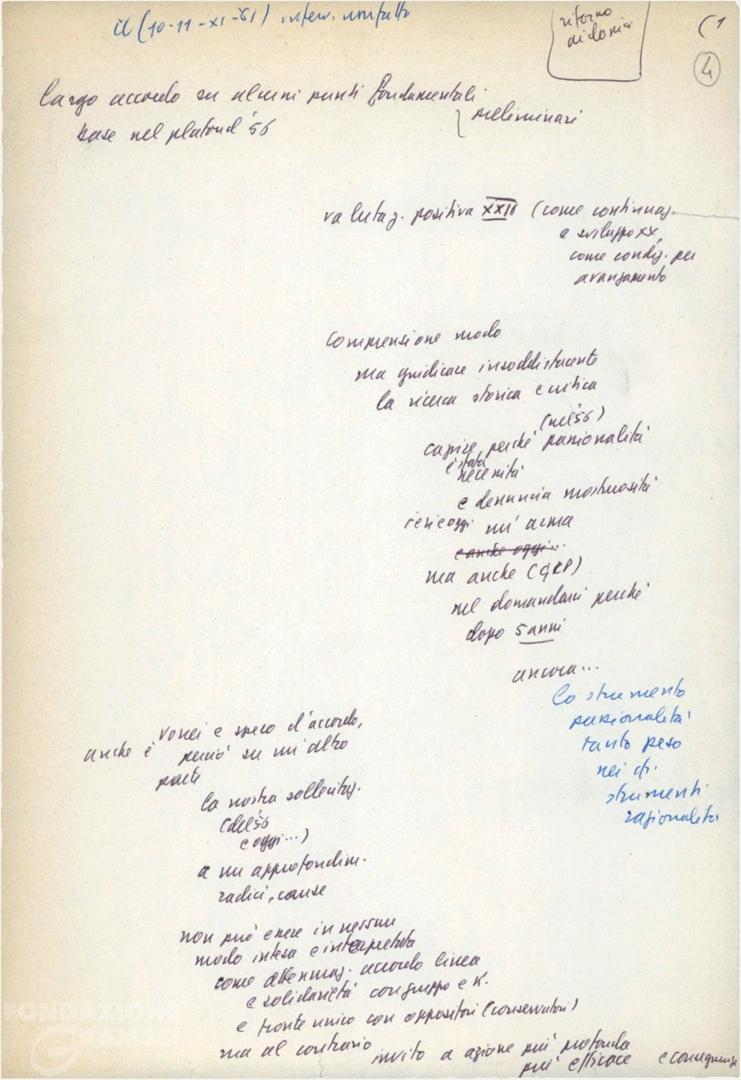 il (10-11-XI-61) interv. non fatto
ritorno
di
(1
4
largo accordo su alcuni punti fondamentali
base nel plafond '56
preliminari
valutaz. positiva XXII (come continuaz.
e sviluppo XX,
come condiz. per
avanzamento
comprensione modo
ma giudicare insoddisfacente
la ricerca storica critica
(nel 56)
capire perché passionalità
è stata
necessità
e denuncia mostruosità
oggi un'arma
e anche oggi...
ma anche (GRP)
nel domandarsi perché
dopo 5 anni
ancora...
Lo strumento
passionalità
tanto peso
nei cfr.
strumenti
razionalità
vorrei e spero d'accordo,
anche è perciò su un'altro
parte
la nostra sollecitaz.
(del 56
e oggi...)
a un approfondim.
radici, cause
non può essere in nessun
modo intesa e interpretata
come attenuaz. accordo linea
e solidarietà con gruppo e K.
e fronte unico con oppositori (conservatori)
ma al contrario invito a azione più profonda
più efficace e conseguente
FONDAZIONE
GRAMSCI